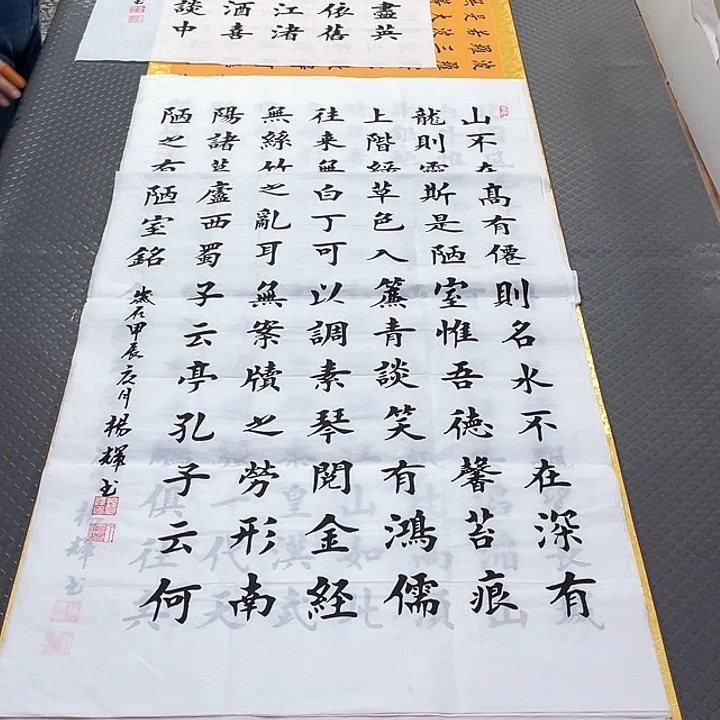 盡英
依舊
江渚
酒喜
談中
山不在高有僊則名水不在深有
龍則靈斯是陋室惟吾徳馨苔痕
上階緑草色入簾青談笑有鴻儒
往来無白丁可以調素琴閲金経
無絲竹之亂耳無案牘之勞形南
陽諸葛廬西蜀子云亭孔子云何
陋之有陋室銘
歲在甲辰夏月楊輝书